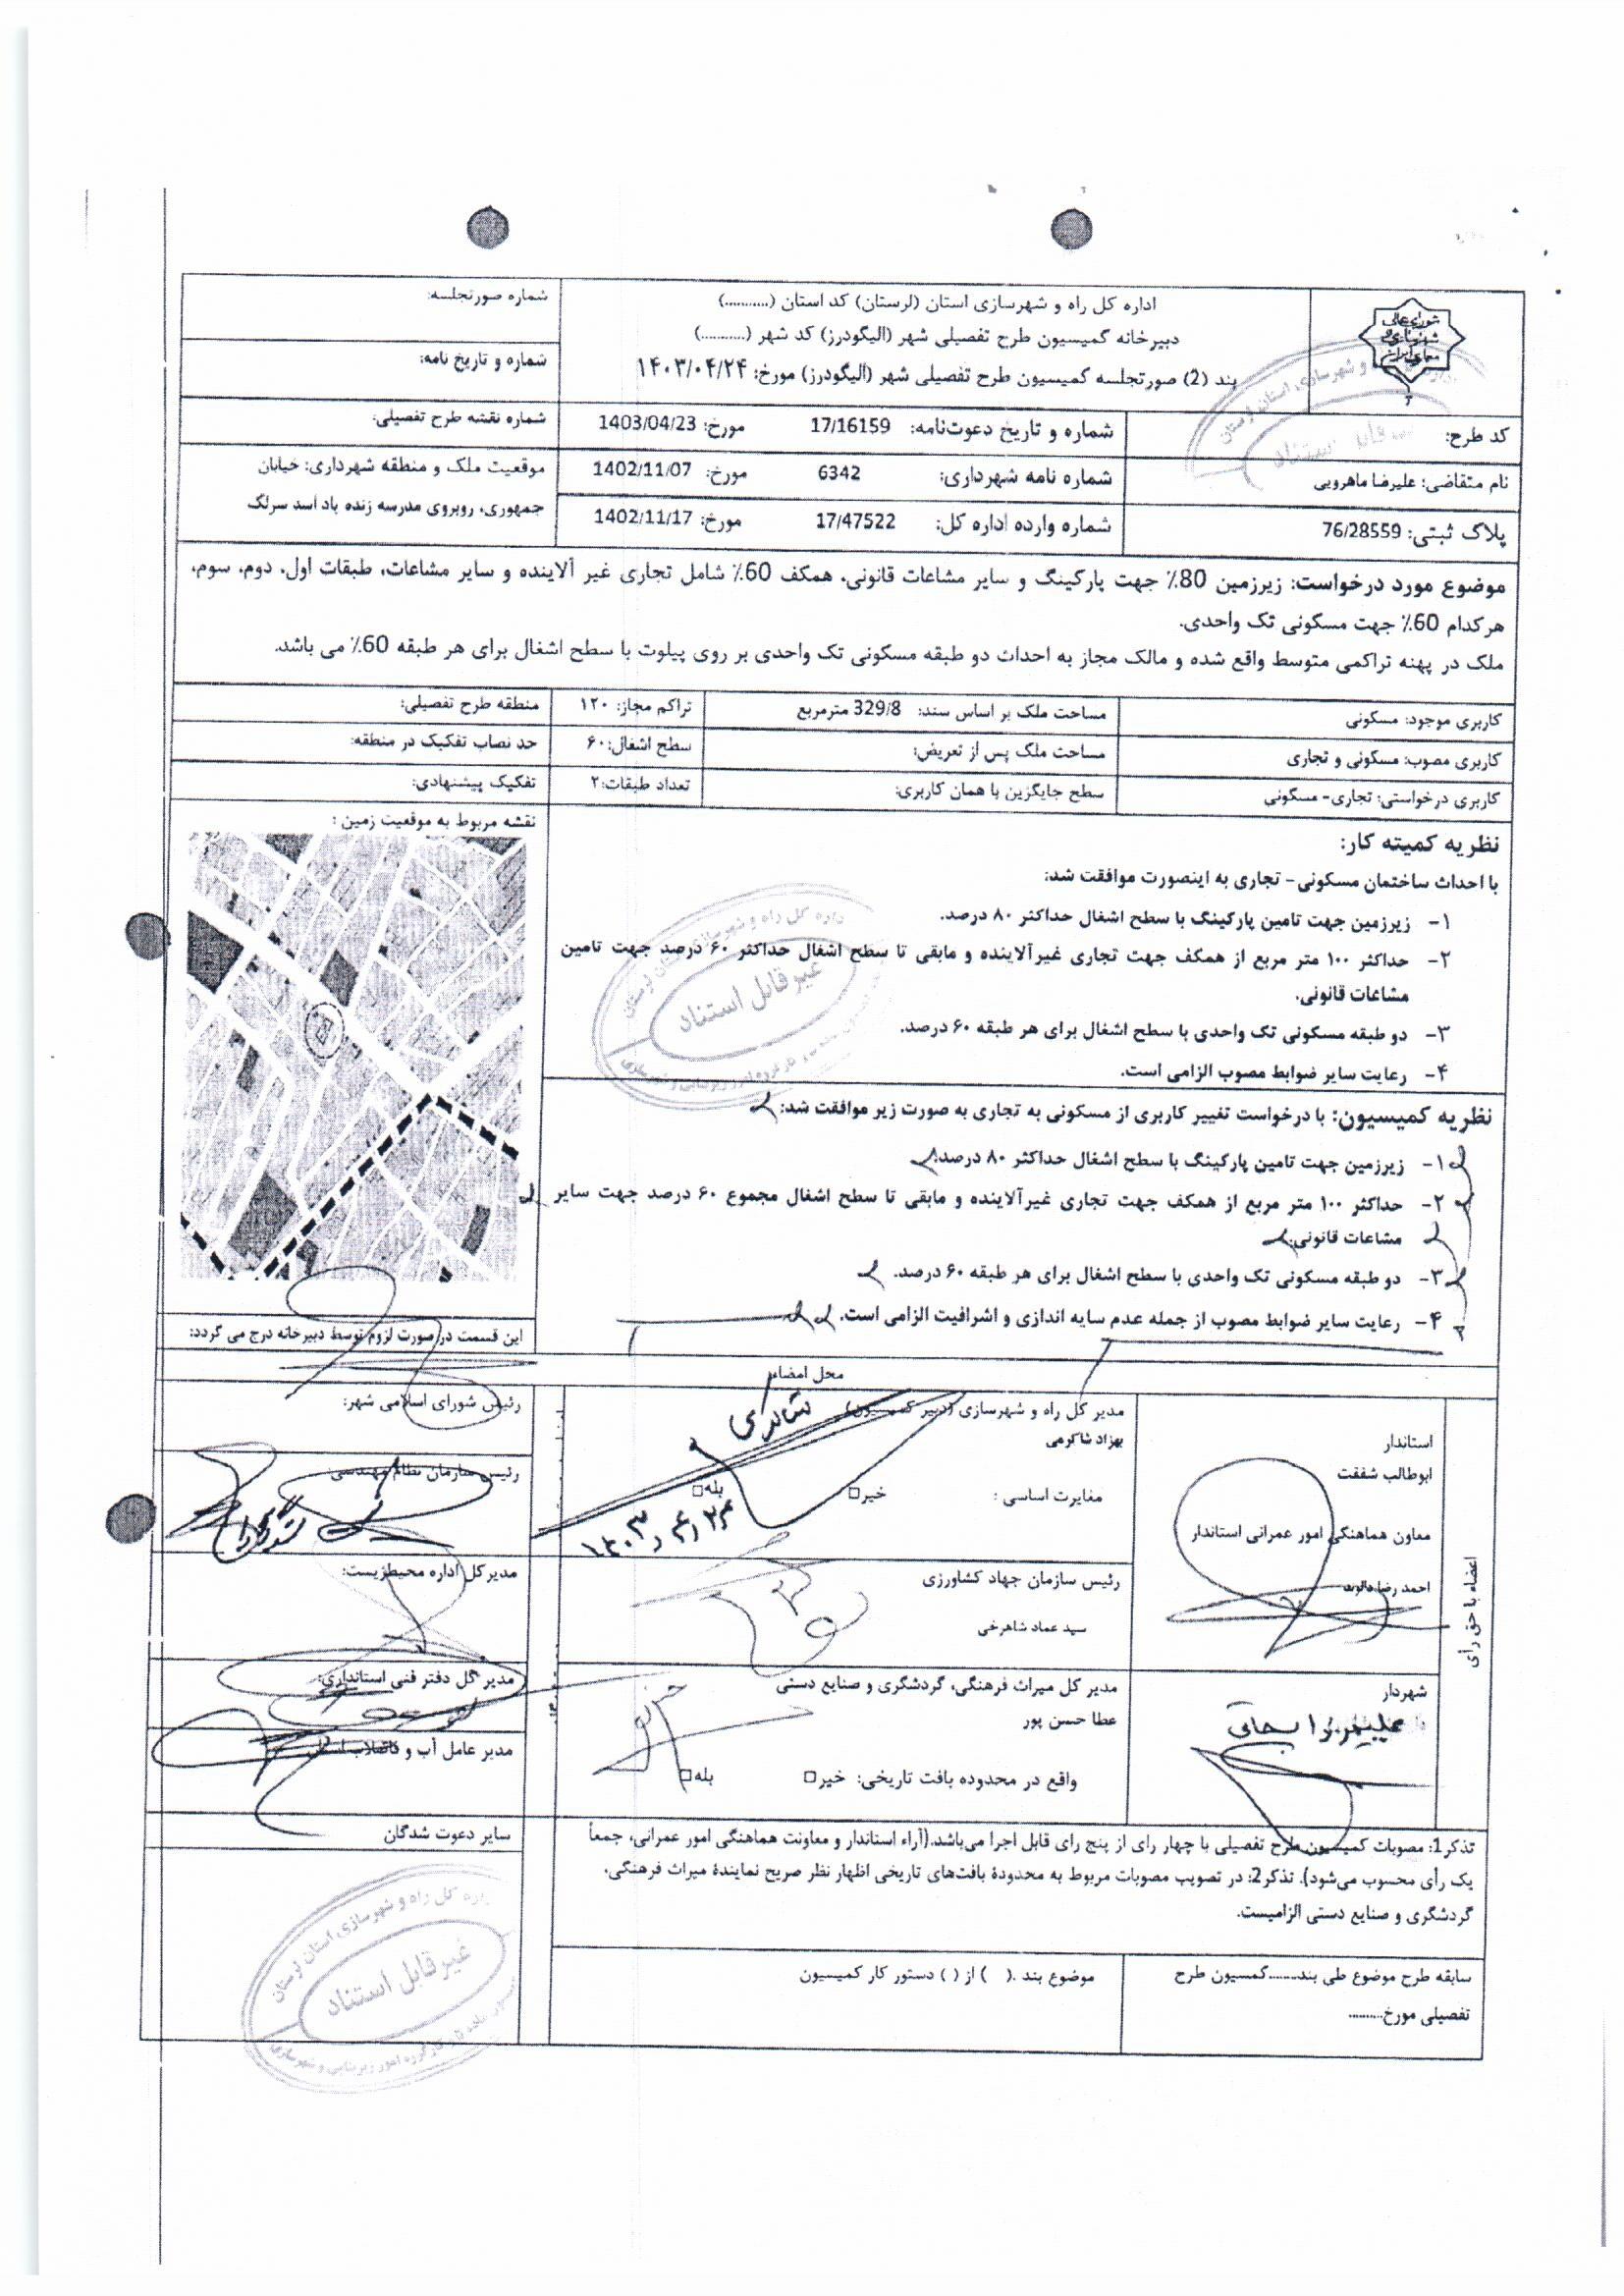 شورای عالی
شهرسازی و
معماری ایران
اداره کل راه و شهرسازی استان (لرستان) کد استان (...........)
دبیرخانه کمیسیون طرح تفصیلی شهر (الیگودرز) کد شهر (...........)
بند (2) صورتجلسه کمیسیون طرح تفصیلی شهر (الیگودرز) مورخ: ۱۴۰۳/۰۴/۲۴
شماره صورتجلسه:
شماره و تاریخ نامه:
کد طرح:
شماره و تاریخ دعوت‌نامه: 17/16159 مورخ: 1403/04/23
شماره نقشه طرح تفصیلی:
نام متقاضی: علیرضا ماهرویی
شماره نامه شهرداری: 6342 مورخ: 1402/11/07
موقعیت ملک و منطقه شهرداری: خیابان
جمهوری، روبروی مدرسه زنده یاد اسد سرلک
پلاک ثبتی: 76/28559
شماره وارده اداره کل: 17/47522 مورخ: 1402/11/17
موضوع مورد درخواست: زیرزمین 80٪ جهت پارکینگ و سایر مشاعات قانونی، همکف 60٪ شامل تجاری غیر آلاینده و سایر مشاعات، طبقات اول، دوم، سوم،
هرکدام 60٪ جهت مسکونی تک واحدی.
ملک در پهنه تراکمی متوسط واقع شده و مالک مجاز به احداث دو طبقه مسکونی تک واحدی بر روی پیلوت با سطح اشغال برای هر طبقه 60٪ می باشد.
کاربری موجود: مسکونی
مساحت ملک بر اساس سند: 329/8 مترمربع
تراکم مجاز: ۱۲۰
منطقه طرح تفصیلی:
کاربری مصوب: مسکونی و تجاری
مساحت ملک پس از تعریض:
سطح اشغال: ۶۰
حد نصاب تفکیک در منطقه:
کاربری درخواستی: تجاری- مسکونی
سطح جایگزین با همان کاربری:
تعداد طبقات: ۲
تفکیک پیشنهادی:
نقشه مربوط به موقعیت زمین :
نظریه کمیته کار:
با احداث ساختمان مسکونی- تجاری به اینصورت موافقت شد:
۱- زیرزمین جهت تامین پارکینگ با سطح اشغال حداکثر ۸۰ درصد.
۲- حداکثر ۱۰۰ متر مربع از همکف جهت تجاری غیرآلاینده و مابقی تا سطح اشغال حداکثر ۶۰ درصد جهت تامین
مشاعات قانونی.
۳- دو طبقه مسکونی تک واحدی با سطح اشغال برای هر طبقه ۶۰ درصد.
۴- رعایت سایر ضوابط مصوب الزامی است.
غیرقابل استناد
نظریه کمیسیون: با درخواست تغییر کاربری از مسکونی به تجاری به صورت زیر موافقت شد:
۱- زیرزمین جهت تامین پارکینگ با سطح اشغال حداکثر ۸۰ درصد.
۲- حداکثر ۱۰۰ متر مربع از همکف جهت تجاری غیرآلاینده و مابقی تا سطح اشغال مجموع ۶۰ درصد جهت سایر
مشاعات قانونی.
۳- دو طبقه مسکونی تک واحدی با سطح اشغال برای هر طبقه ۶۰ درصد.
۴- رعایت سایر ضوابط مصوب از جمله عدم سایه اندازی و اشرافیت الزامی است.
این قسمت در صورت لزوم توسط دبیرخانه درج می گردد:
محل امضاء
اعضاء با حق رأی
استاندار
ابوطالب شفقت
معاون هماهنگی امور عمرانی استاندار
احمد رضا دالوند
مدیر کل راه و شهرسازی (دبیر کمیسیون)
بهزاد شاکرمی
شاکرمی
مغایرت اساسی : خیر□ بله□
۱۴۰۳/۴/۲۴
رئیس شورای اسلامی شهر:
رئیس سازمان نظام مهندسی:
رئیس سازمان جهاد کشاورزی
سید عماد شاهرخی
مدیرکل اداره محیط‌زیست:
شهردار
مدیر کل میراث فرهنگی، گردشگری و صنایع دستی
عطا حسن پور
واقع در محدوده بافت تاریخی: خیر□ بله□
مدیر کل دفتر فنی استانداری:
مدیر عامل آب و فاضلاب استان
سایر دعوت شدگان
تذکر1: مصوبات کمیسیون طرح تفصیلی با چهار رای از پنج رای قابل اجرا می‌باشد.(آراء استاندار و معاونت هماهنگی امور عمرانی، جمعاً
یک رأی محسوب می‌شود). تذکر2: در تصویب مصوبات مربوط به محدودۀ بافت‌های تاریخی اظهار نظر صریح نمایندۀ میراث فرهنگی،
گردشگری و صنایع دستی الزامیست.
سابقه طرح موضوع طی بند........کمسیون طرح
تفصیلی مورخ..........
موضوع بند .( ) از ( ) دستور کار کمیسیون
اداره کل راه و شهرسازی استان لرستان
غیرقابل استناد